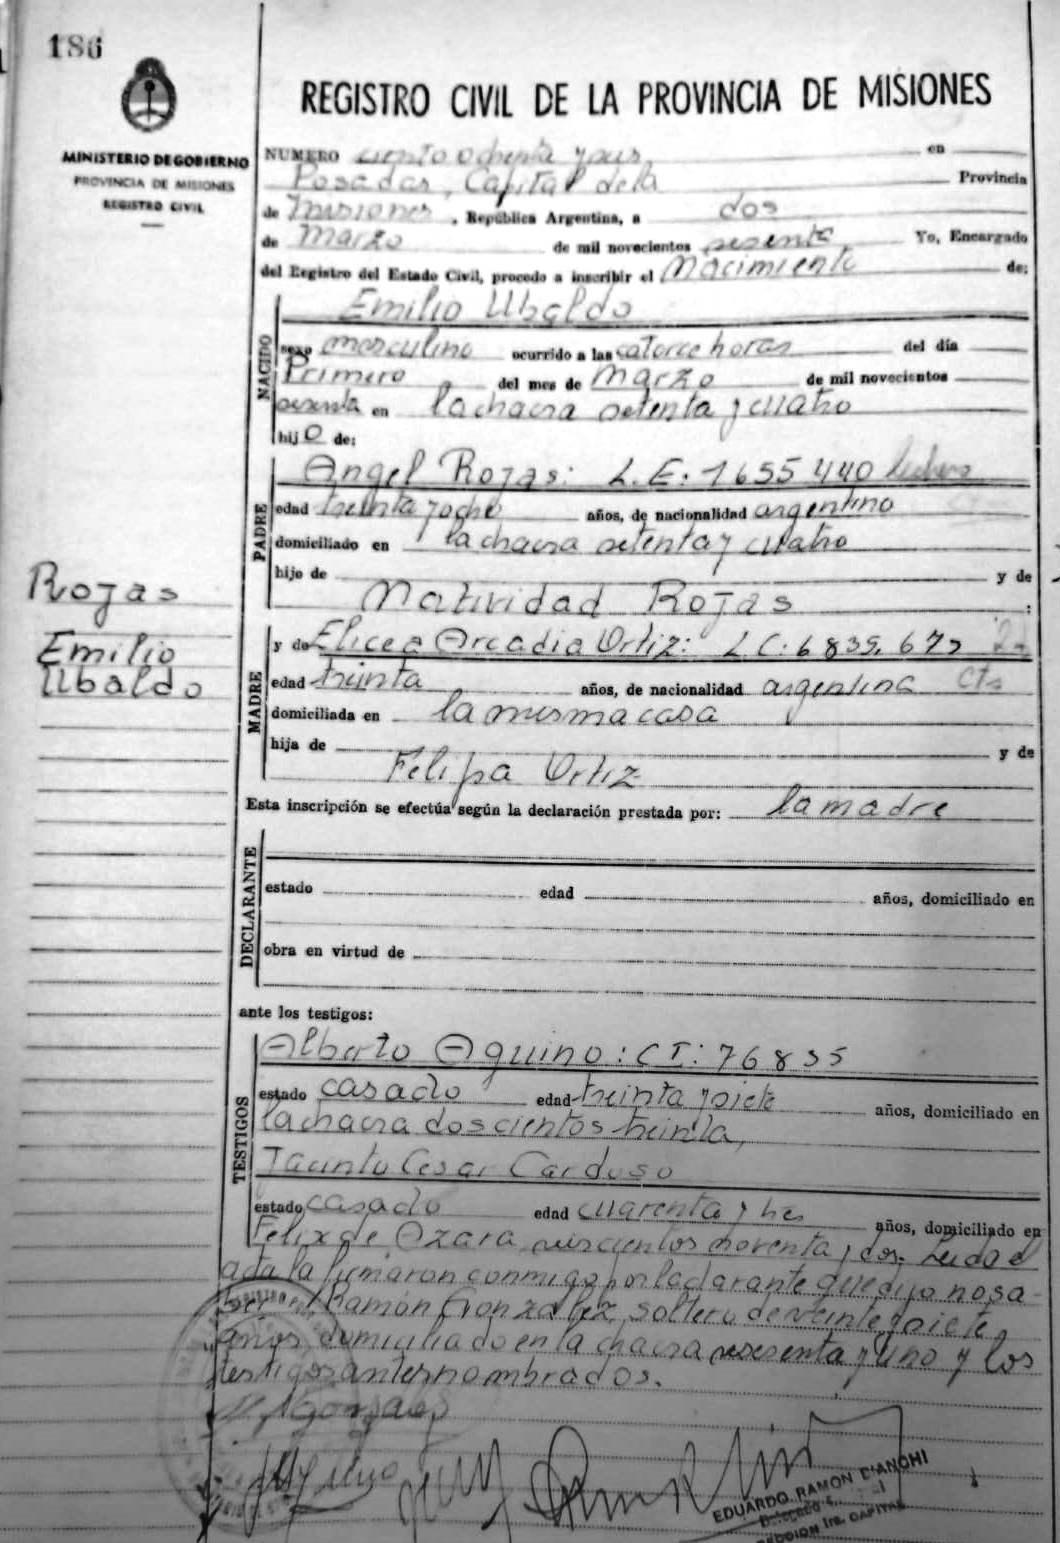 186
MINISTERIO DE GOBIERNO
PROVINCIA DE MISIONES
REGISTRO CIVIL
REGISTRO CIVIL DE LA PROVINCIA DE MISIONES
NUMERO ciento ochenta y seis en
Posadas, Capital de la Provincia
de Misiones, República Argentina, a dos
de Marzo de mil novecientos sesenta Yo, Encargado
del Registro del Estado Civil, procedo a inscribir el Nacimiento de:
NACIDO
Emilio Ubaldo
sexo masculino ocurrido a las catorce horas del día
Primero del mes de Marzo de mil novecientos
sesenta en la chacra setenta y cuatro
hijo de:
PADRE
Angel Rojas: L.E. 1655440
edad treinta y ocho años, de nacionalidad argentino
domiciliado en la chacra setenta y cuatro
hijo de y de
Natividad Rojas :
Rojas
Emilio
Ubaldo
MADRE
y de Elicea Arcadia Ortiz: L.C: 6839.673
edad treinta años, de nacionalidad argentina Cts
domiciliada en la misma casa
hija de y de
Felipa Ortiz
Esta inscripción se efectúa según la declaración prestada por: la madre
DECLARANTE
estado edad años, domiciliado en
obra en virtud de
ante los testigos:
TESTIGOS
Alberto Aquino: C I: 76835
estado casado edad treinta y siete años, domiciliado en
la chacra doscientos treinta,
Jacinto Cesar Cardoso
estado casado edad cuarenta y tres años, domiciliado en
Felix de Azara seiscientos noventa y dos. Leida el
acta la firmaron conmigo por la declarante que dijo no sa-
ber Ramón Gonzalez, soltero de veinte y siete
años, domiciliado en la chacra sesenta y uno y los
testigos antes nombrados.
EDUARDO RAMON D'ANGHI
SECCION 1ra. CAPITAL